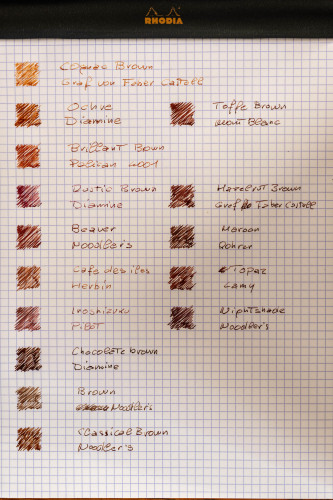 RHODIA
Cognac Brown
Graf von Faber Castell
Ochre
Diamine
Toffe Brown
Mont Blanc
Brillant Bown
Pelikan 4001
Rustic Brown
Diamine
Hazelnut Brown
Graf Faber Castell
Beaver
Noodler's
Maroon
Rohrer
Cafe des iles
Herbin
Topaz
Lamy
Iroshizuku
Pilot
Nightshade
Noodler's
Chocolate brown
Diamine
Brown
Noodler's
Classical Brown
Noodler's